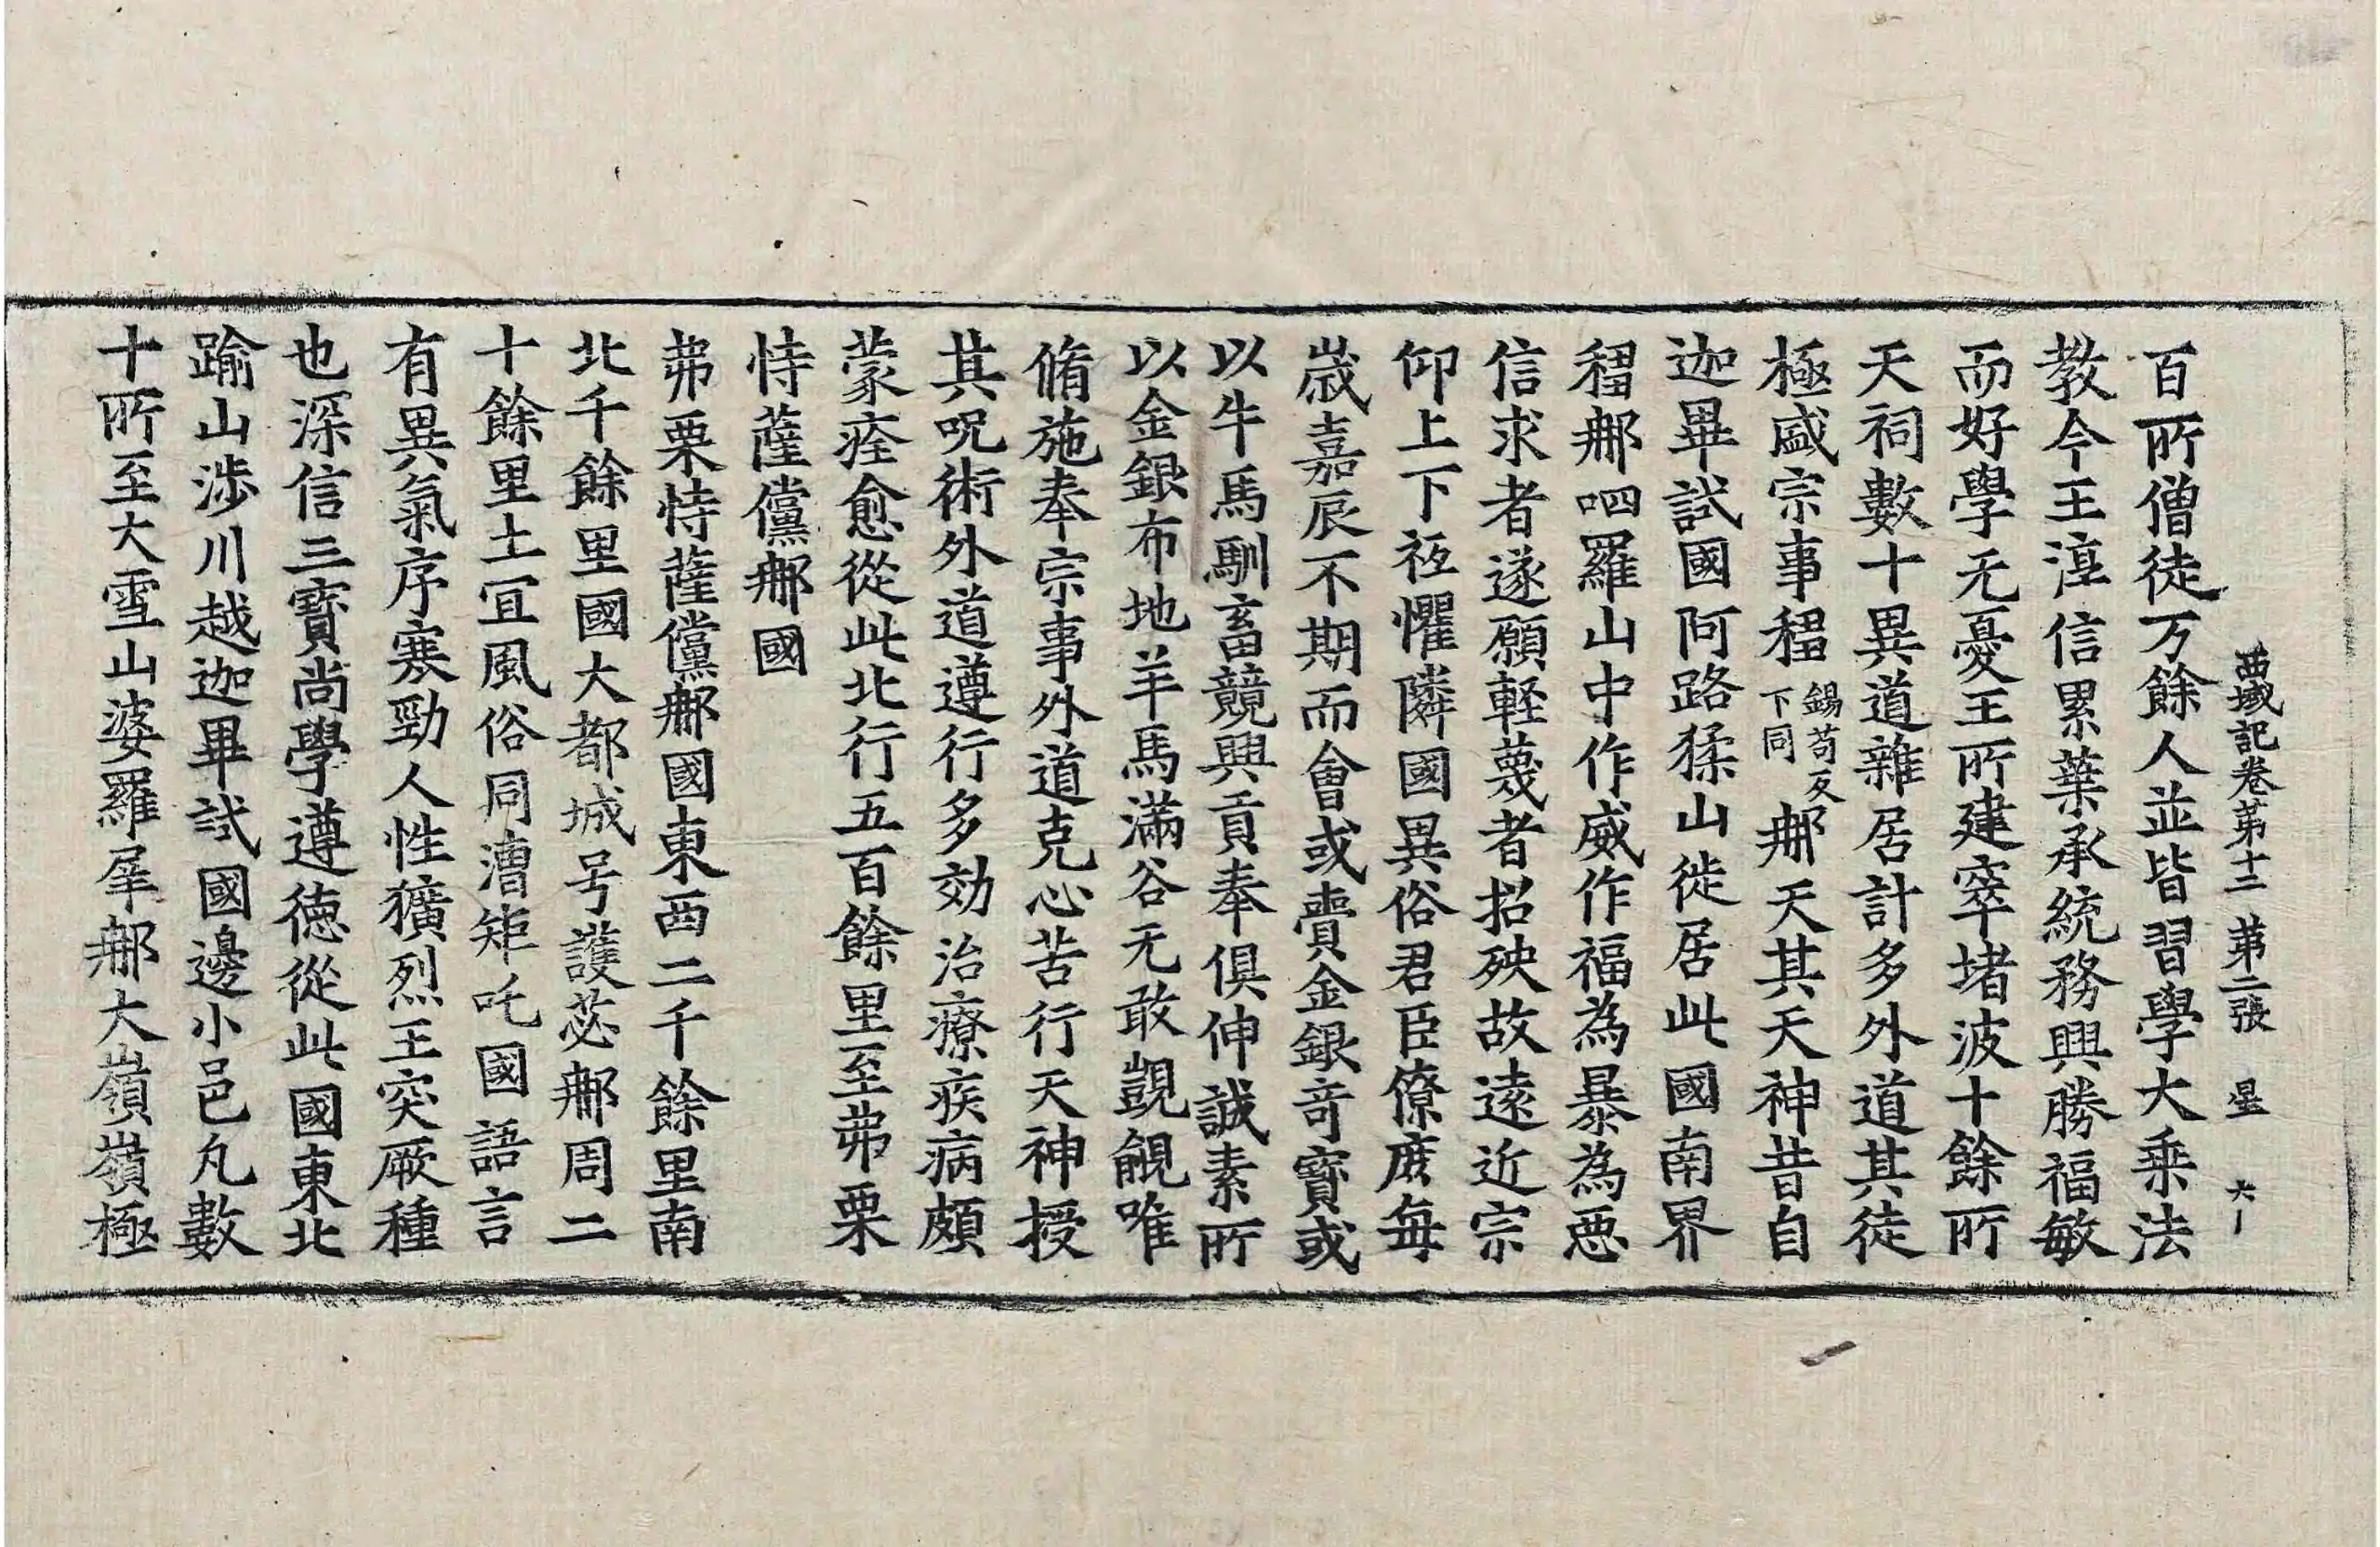 西域記卷苐十二 苐二張 星 六一
百所僧徒万餘人並皆習學大乗法
教今王淳信累葉承統務興勝福敏
而好學无憂王所建窣堵波十餘所
天祠數十異道雜居計多外道其徒
極盛宗事䅳錫苟反下同那天其天神昔自
迦畢試國阿路猱山徙居此國南界
䅳那呬羅山中作威作福為暴為惡
信求者遂願軽蔑者招殃故遠近宗
仰上下祗懼隣國異俗君臣僚庶每
歲嘉辰不期而會或賷金銀竒寶或
以牛馬馴畜競興貢奉俱伸誠素所
以金銀布地羊馬滿谷无敢覬覦唯
脩施奉宗事外道克心苦行天神授
其呪術外道遵行多効治療疾病頗
蒙痊愈從此北行五百餘里至弗栗
恃薩儻那國
弗栗恃薩儻那國東西二千餘里南
北千餘里國大都城号護苾那周二
十餘里土冝風俗同漕矩吒國語言
有異氣序寒勁人性獷烈王突厥種
也深信三寶尚學遵徳從此國東北
踰山渉川越迦畢試國邊小邑凡數
十所至大雪山婆羅犀那大嶺嶺極